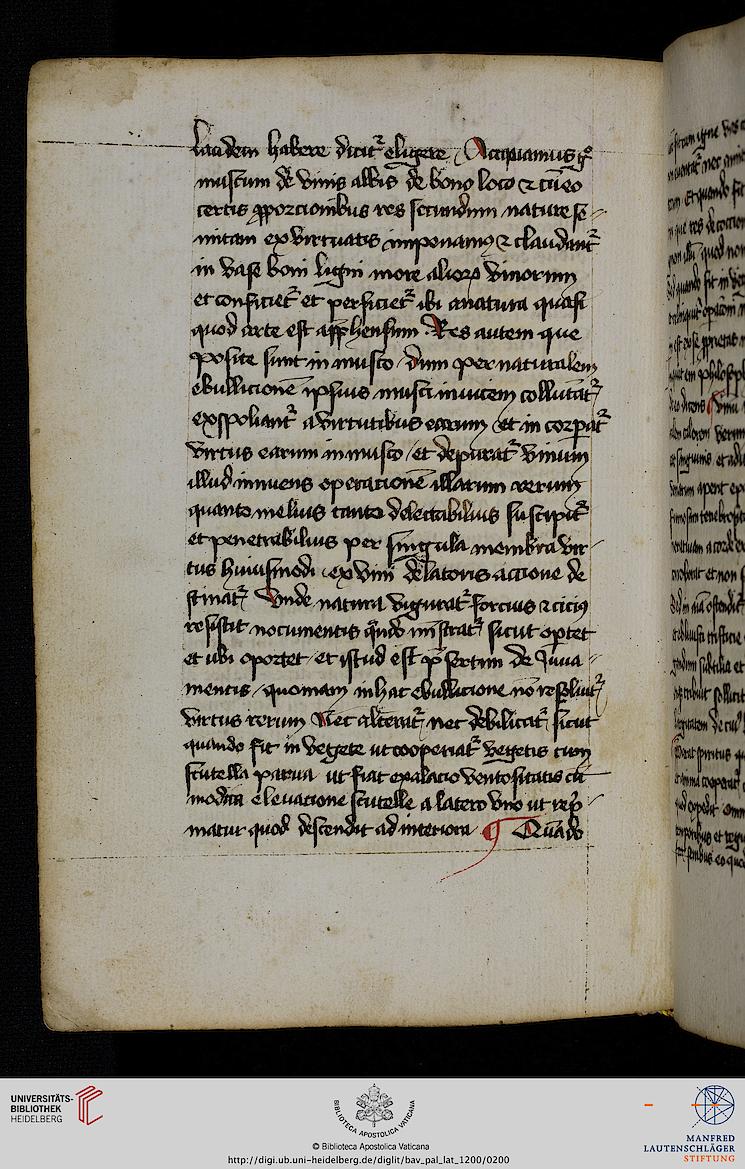 laudem habere dicit᷑ eligere Accipiamus gͦ
mustum de vinis albis de bono loco ⁊ cū eo
certis ꝓporcionibus res secundum nature se-
mitam ex virtuatis imponamꝰ ⁊ claudant᷑
in vase boni ligni more alioꝝ vinorum
et conficiet᷑ et perficiet᷑ ibi a natura quasi
quod arte est app̄hensum Res autem que
posite sunt in musto dum per naturalem
ebullicionē ipsius musti invicem collutāt᷑
exspoliant᷑ a virtutibus earum et in corꝑat᷑
virtus earum in musto et depurat᷑ vinum
illud innuens operacionē illarum rerum
quanto melius tanto delectabilius suscipit᷑
et penetrabilius per singula membra vir-
tus huiusmodi ex vini delatoris accione de
stinat᷑ Vnde natura vigurat᷑ forcius ⁊ ciciꝰ
resistit nocumentis qn̄do mīstrat᷑ sicut oꝑtet
et ubi oportet et istud est p̄sertim de Juua-
mentis quoniam in hac ebullicione nō resoluit᷑
virtus rerum Nec alterat᷑ nec debilitat᷑ sicut
quando fit in vegete ut cooperiat᷑ vegetis cum
scutella parua ut fiat expalacio ventositatis cū
modica eleuacione scutelle a latere vno ut rep̄-
matur quod descendit ad interiora ¶ Quādo
UNIVERSITÄTS-
BIBLIOTHEK
HEIDELBERG
BIBLIOTECA APOSTOLICA VATICANA
© Biblioteca Apostolica Vaticana
http://digi.ub.uni-heidelberg.de/diglit/bav_pal_lat_1200/0200
MANFRED
LAUTENSCHLÄGER
STIFTUNG